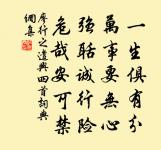 一生俱有分
萬事要無心
強聒誠行險
危哉安可禁
廖行之遣興四首詞典
網集